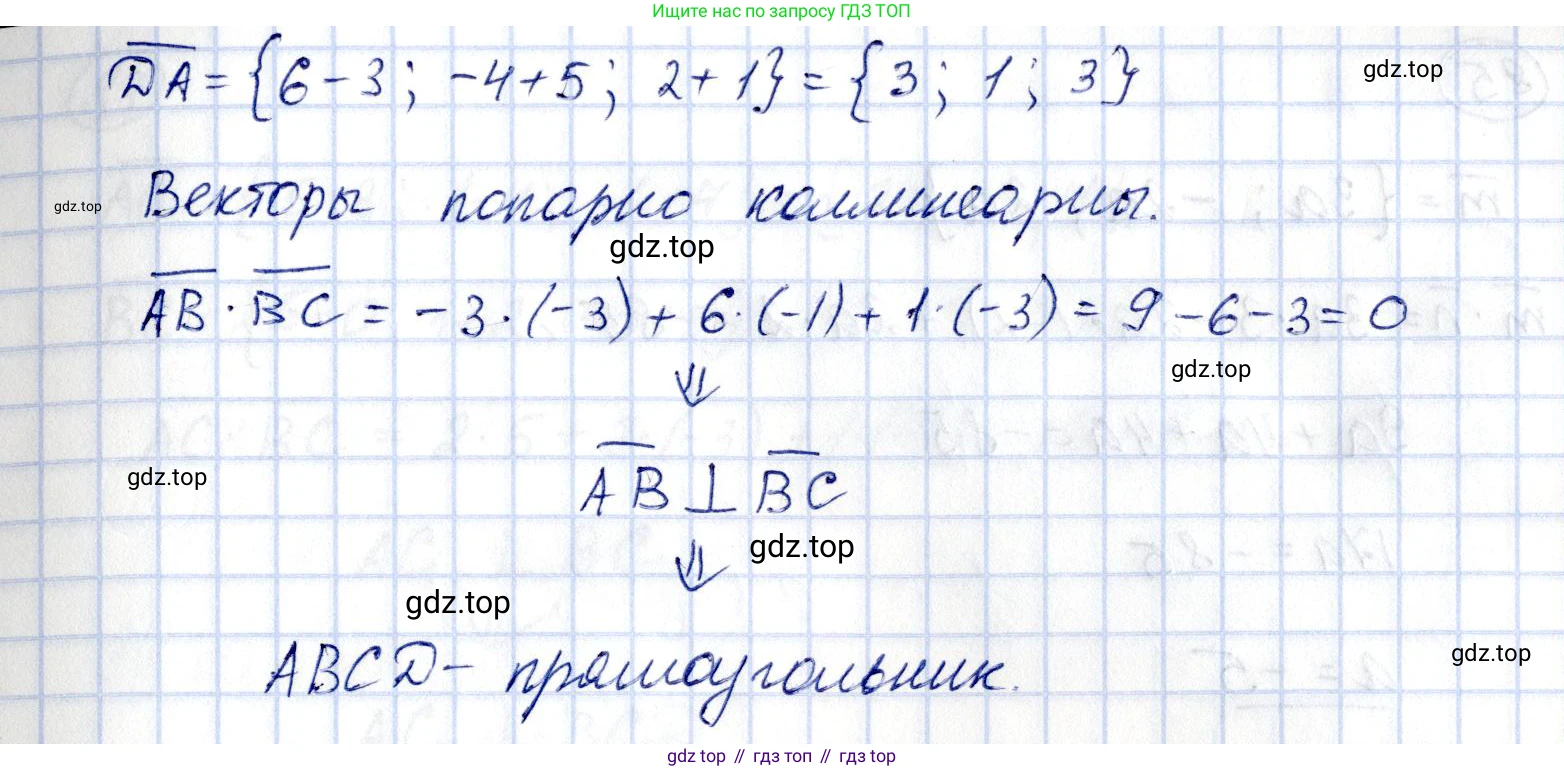 Ищите нас по запросу ГДЗ ТОП
DA = {6 - 3; -4 + 5; 2 + 1} = {3; 1; 3}
gdz.top
Векторы попарно коллинеарны.
gdz.top
gdz.top
AB · BC = -3 · (-3) + 6 · (-1) + 1 · (-3) = 9 - 6 - 3 = 0
⇓
gdz.top
AB ⊥ BC
gdz.top
⇓
gdz.top
gdz.top
ABCD - прямоугольник.
gdz.top
gdz.top // гдз топ // gdz.top